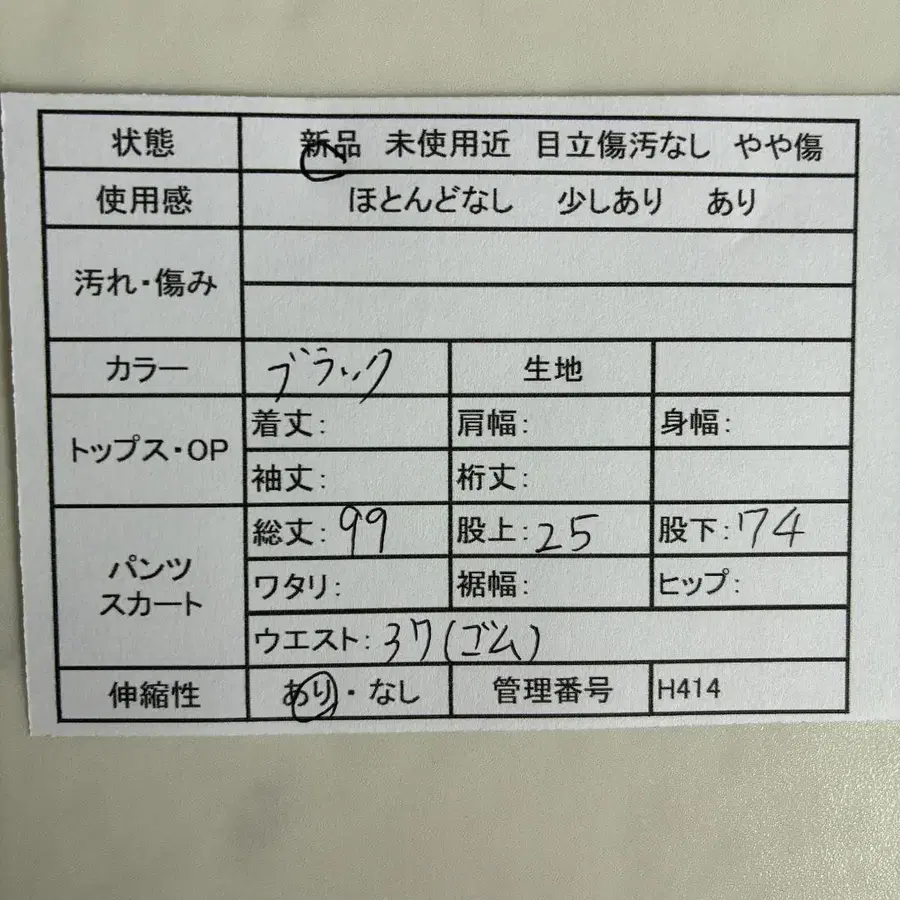 状態 新品 未使用近 目立傷汚なし やや傷
使用感 ほとんどなし 少しあり あり
汚れ・傷み
カラー ブラック 生地
トップス・OP 着丈: 肩幅: 身幅:
袖丈: 裄丈:
パンツ スカート 総丈: 99 股上: 25 股下: 74
ワタリ: 裾幅: ヒップ:
ウエスト: 37(ゴム)
伸縮性 あり・なし 管理番号 H414